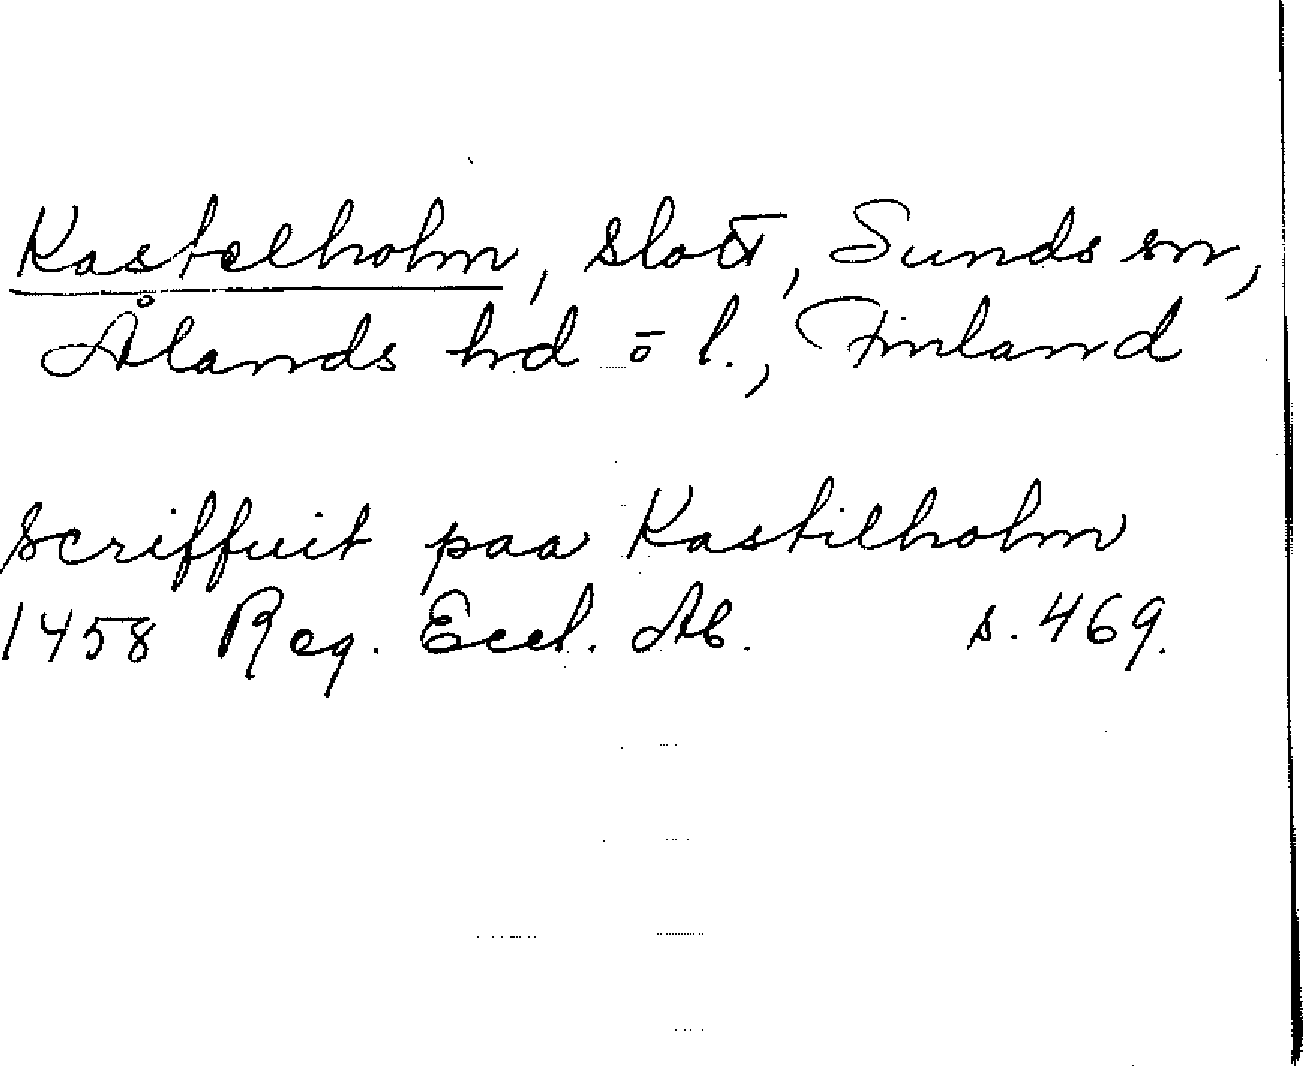 Kastelholm, slott, Sunds sn,
Ålands hd o l., Finland
scriffuit paa Kastilholm
1458 Reg. Eccl. Ab. s. 469.